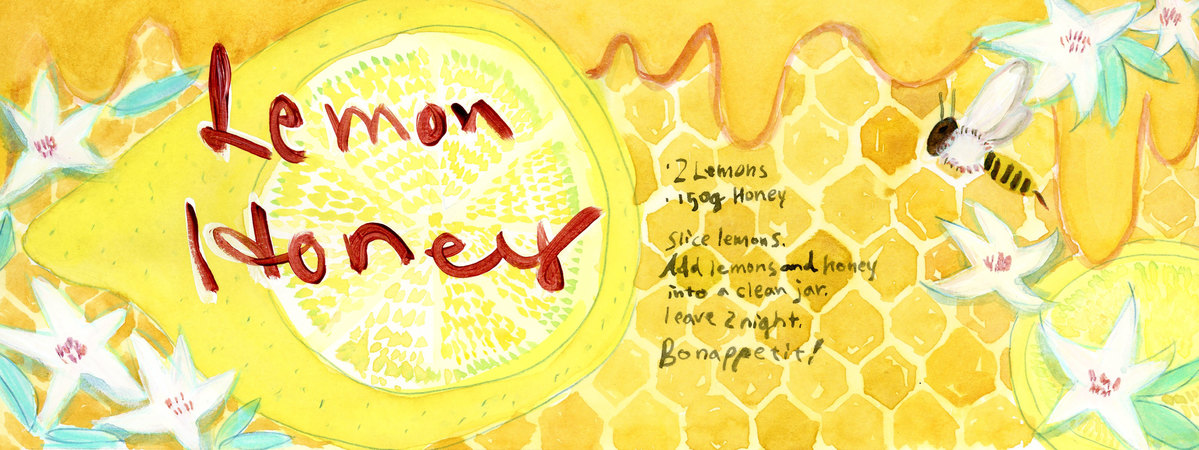 Lemon
Honey
· 2 Lemons
· 150g Honey
Slice lemons.
Add lemons and honey
into a clean jar.
leave 2 night.
Bonappetit!